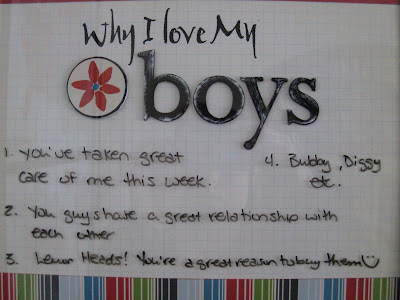 Why I love My
boys
1. you've taken great
care of me this week.
4. Bubby, Diggy
etc.
2. You guys have a great relationship with
each other
3. Lemon Heads! You're a great reason to buy them